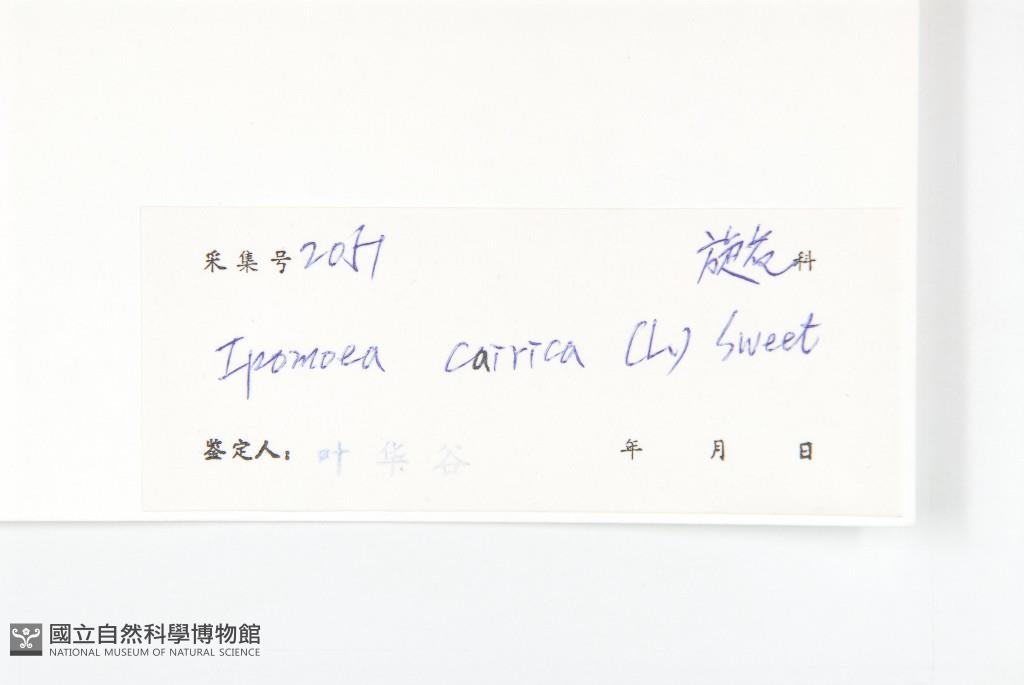 采集号 2051 旋花科
Ipomoea cairica (L.) Sweet
鉴定人: 叶华谷 年 月 日
國立自然科學博物館
NATIONAL MUSEUM OF NATURAL SCIENCE